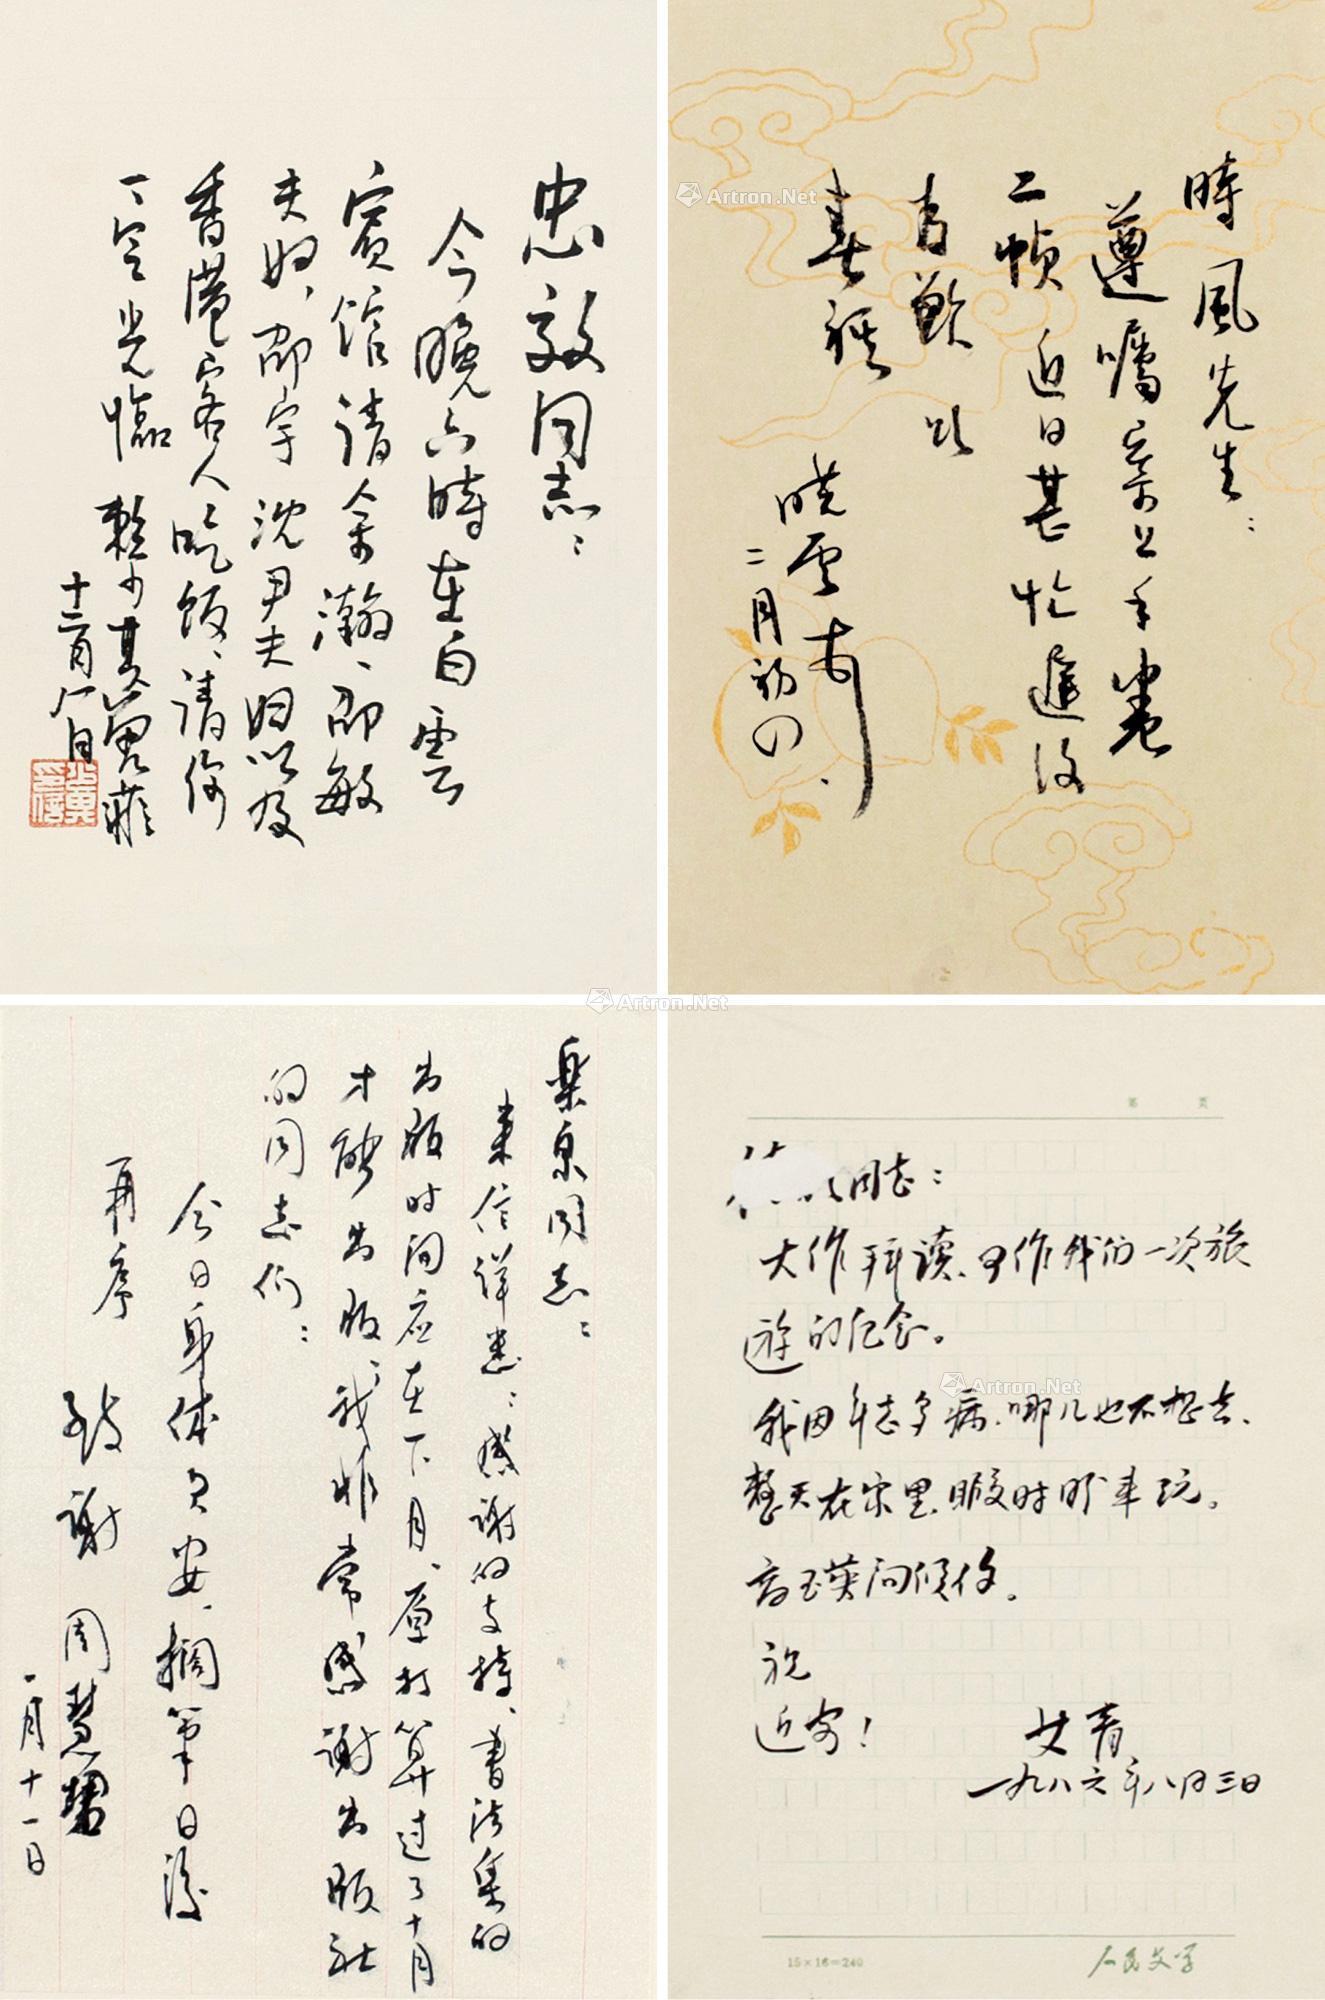 忠敏同志：
今晚六时在白云
宾馆请余瀚、邵敏
夫妇、邵宇沈尹夫妇以及
香港客人吃饭、请你
一定光临 赖少其曾菲
十二月八日
時風先生：
遵嘱寄上手卷
二帧 近日甚忙 遲复
为歉 此
春祺
曉雲
二月初四
Artron.Net
樂泉同志：
来信详悉：感谢的支持、書法集的
出版时间应在下月、原打算过了十月
才能出版、我非常感谢出版社
的同志们：
今日身体欠安、搁筆日後
再序
致谢 周慧珺
一月十一日
Artron.Net
第 页
同志：
大作拜读、可作我们一次旅
游的纪念。
我因年老多病、哪儿也不想去、
整天在家里、暇时盼来玩。
高瑛问候你。
祝
近安！
艾青
一九八六年八月三日
Artron.Net
15×16=240
人民文学